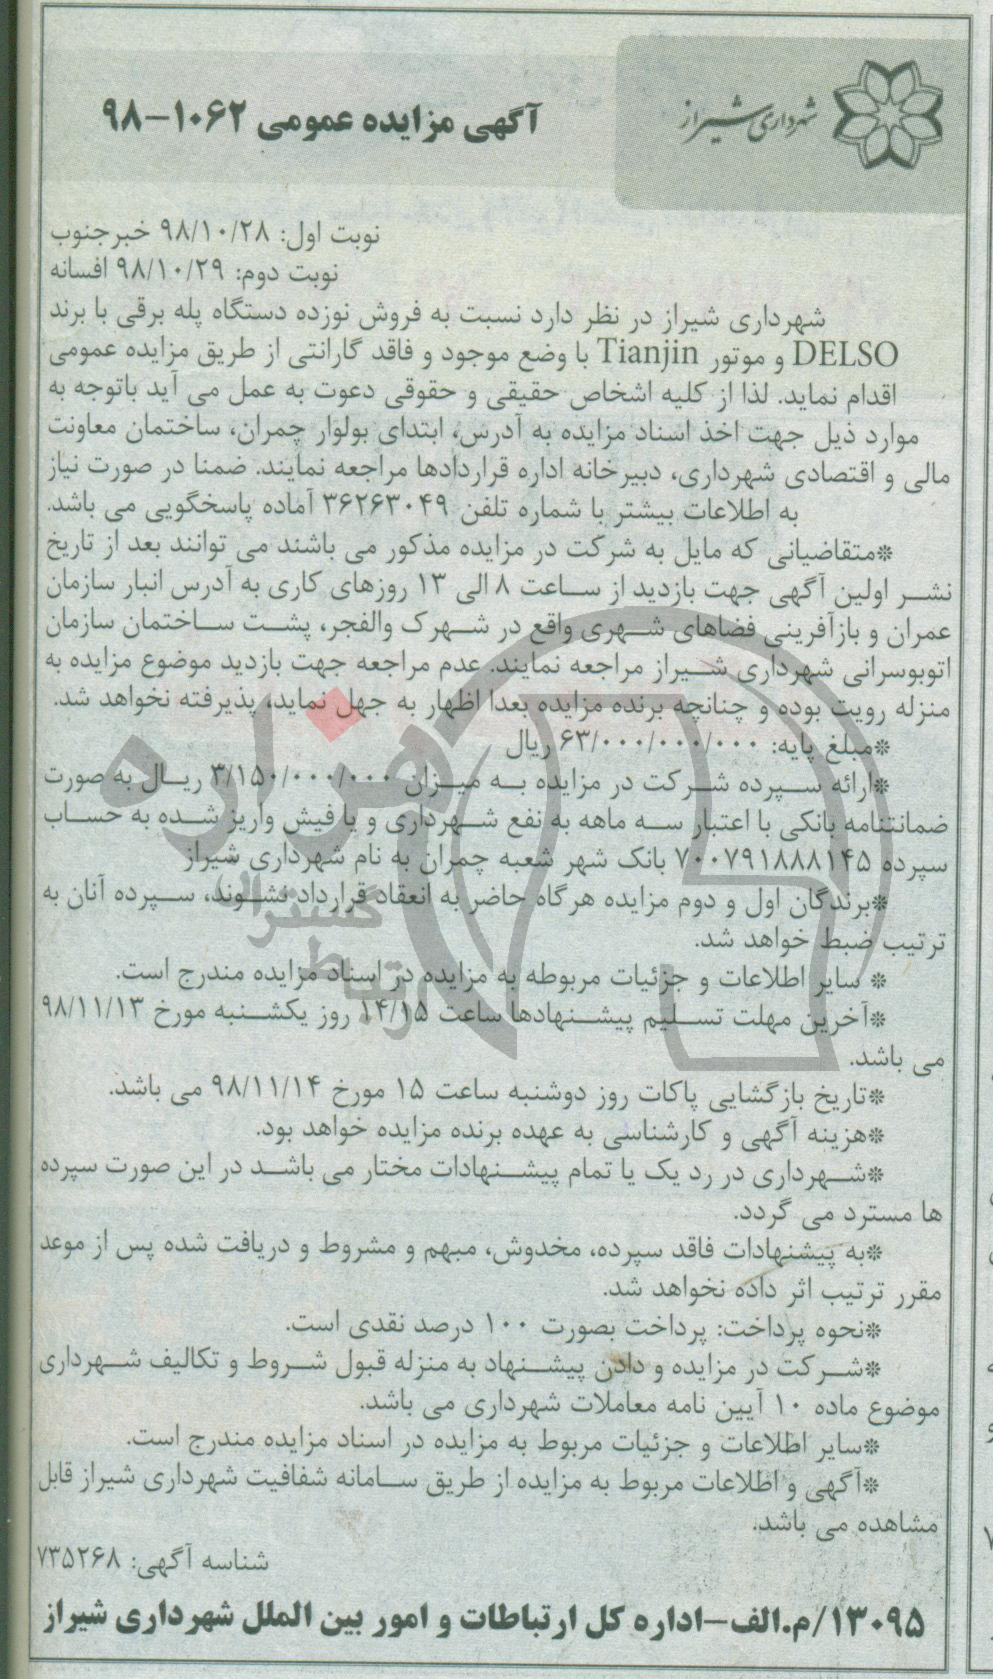 شهرداری شیراز
آگهی مزایده عمومی ۱۰۶۲-۹۸
نوبت اول: ۹۸/۱۰/۲۸ خبرجنوب
نوبت دوم: ۹۸/۱۰/۲۹ افسانه
شهرداری شیراز در نظر دارد نسبت به فروش نوزده دستگاه پله برقی با برند
DELSO و موتور Tianjin با وضع موجود و فاقد گارانتی از طریق مزایده عمومی
اقدام نماید. لذا از کلیه اشخاص حقیقی و حقوقی دعوت به عمل می آید باتوجه به
موارد ذیل جهت اخذ اسناد مزایده به آدرس، ابتدای بولوار چمران، ساختمان معاونت
مالی و اقتصادی شهرداری، دبیرخانه اداره قراردادها مراجعه نمایند. ضمنا در صورت نیاز
به اطلاعات بیشتر با شماره تلفن ۳۶۲۶۳۰۴۹ آماده پاسخگویی می باشد.
*متقاضیانی که مایل به شرکت در مزایده مذکور می باشند می توانند بعد از تاریخ
نشر اولین آگهی جهت بازدید از ساعت ۸ الی ۱۳ روزهای کاری به آدرس انبار سازمان
عمران و بازآفرینی فضاهای شهری واقع در شهرک والفجر، پشت ساختمان سازمان
اتوبوسرانی شهرداری شیراز مراجعه نمایند. عدم مراجعه جهت بازدید موضوع مزایده به
منزله رویت بوده و چنانچه برنده مزایده بعدا اظهار به جهل نماید، پذیرفته نخواهد شد.
*مبلغ پایه: ۶۳/۰۰۰/۰۰۰/۰۰۰ ریال
*ارائه سپرده شرکت در مزایده به میزان ۳/۱۵۰/۰۰۰/۰۰۰ ریال به صورت
ضمانتنامه بانکی با اعتبار سه ماهه به نفع شهرداری و یا فیش واریز شده به حساب
سپرده ۷۰۰۷۹۱۸۸۸۱۴۵ بانک شهر شعبه چمران به نام شهرداری شیراز
*برندگان اول و دوم مزایده هرگاه حاضر به انعقاد قرارداد نشوند، سپرده آنان به
ترتیب ضبط خواهد شد.
* سایر اطلاعات و جزئیات مربوطه به مزایده در اسناد مزایده مندرج است.
*آخرین مهلت تسلیم پیشنهادها ساعت ۱۴/۱۵ روز یکشنبه مورخ ۹۸/۱۱/۱۳
می باشد.
*تاریخ بازگشایی پاکات روز دوشنبه ساعت ۱۵ مورخ ۹۸/۱۱/۱۴ می باشد.
*هزینه آگهی و کارشناسی به عهده برنده مزایده خواهد بود.
*شهرداری در رد یک یا تمام پیشنهادات مختار می باشد در این صورت سپرده
ها مسترد می گردد.
*به پیشنهادات فاقد سپرده، مخدوش، مبهم و مشروط و دریافت شده پس از موعد
مقرر ترتیب اثر داده نخواهد شد.
*نحوه پرداخت: پرداخت بصورت ۱۰۰ درصد نقدی است.
*شرکت در مزایده و دادن پیشنهاد به منزله قبول شروط و تکالیف شهرداری
موضوع ماده ۱۰ آیین نامه معاملات شهرداری می باشد.
*سایر اطلاعات و جزئیات مربوط به مزایده در اسناد مزایده مندرج است.
*آگهی و اطلاعات مربوط به مزایده از طریق سامانه شفافیت شهرداری شیراز قابل
مشاهده می باشد.
شناسه آگهی: ۷۳۵۲۶۸
۱۳۰۹۵/م.الف-اداره کل ارتباطات و امور بین الملل شهرداری شیراز